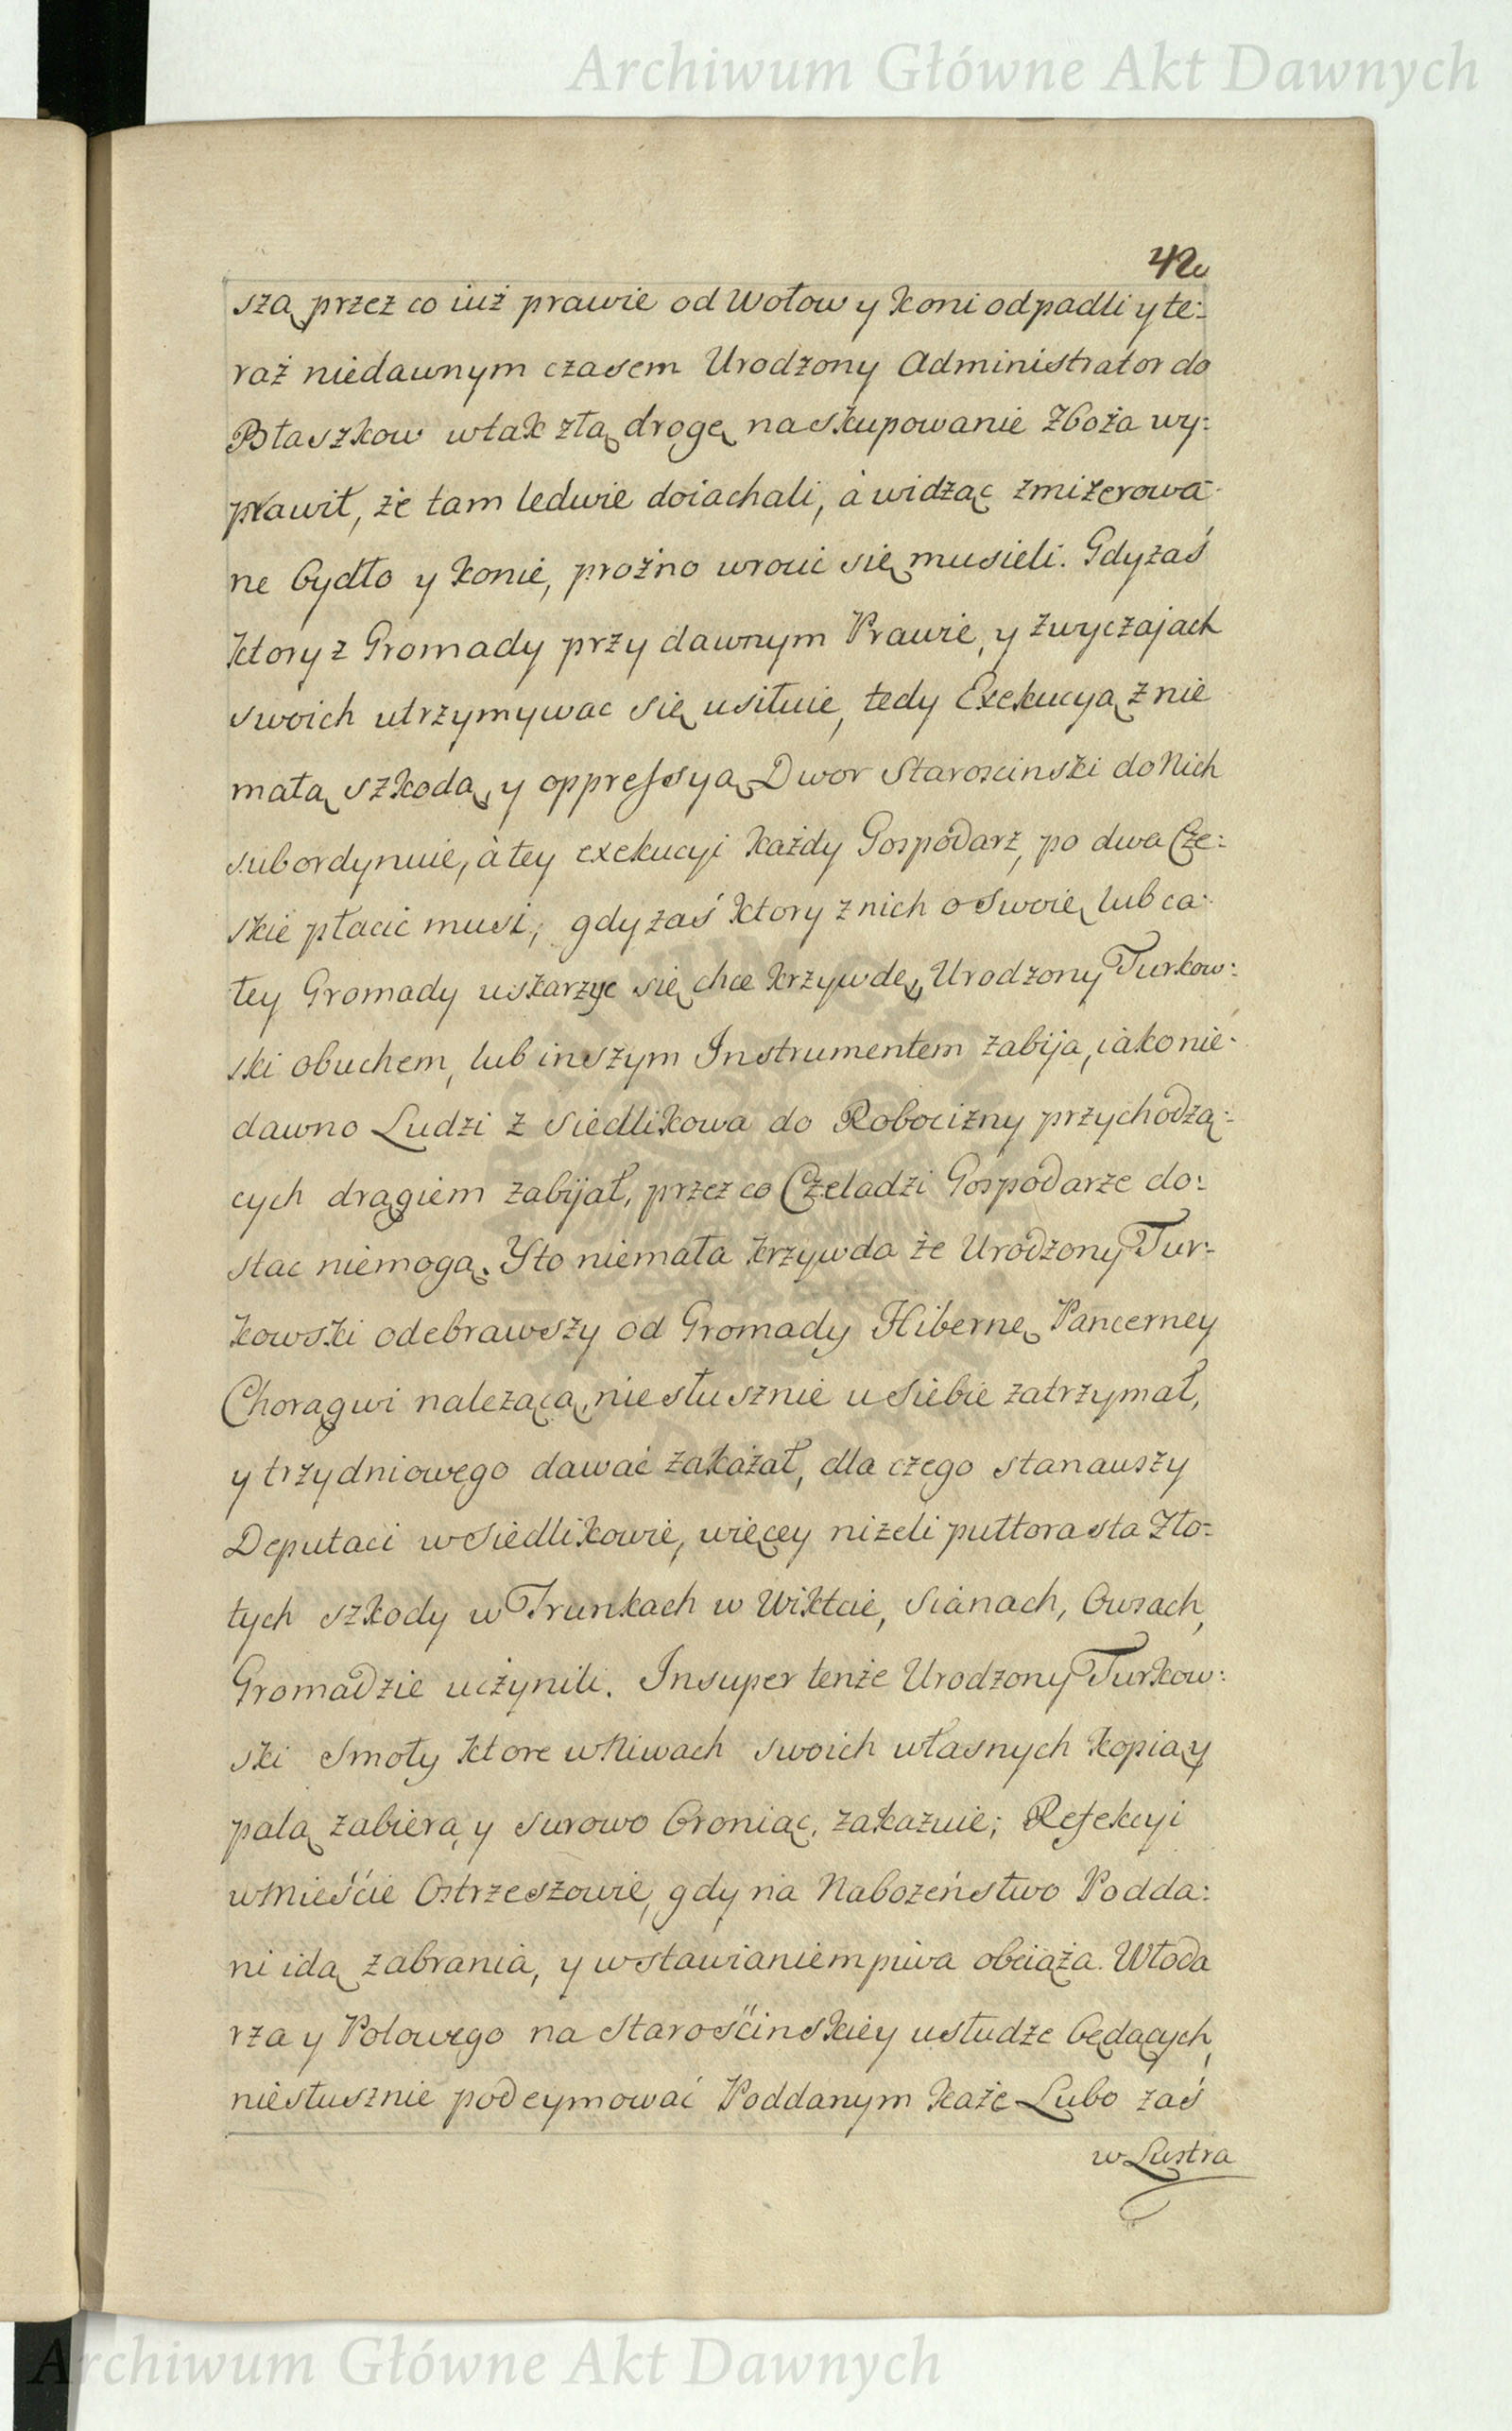 Archiwum Główne Akt Dawnych
42
szą przez co iuż prawie od Wołow y koni odpadli y te:
raż niedawnym czasem Urodzony Administrator do
Błaszkow wtak złą drogę naskupowanie Zboża wy:
prawił, że tam ledwie doiachali, à widżąc zmiżerowa-
ne bydło y konie, prożno wrocic się musieli. Gdyżaś
ktory z Gromady przy dawnym Prawie, y żwyczajach
swoich utrzymywac się usiłuie, tedy Exekucyą z nie
małą szkodą, y oppressyą Dwor Starościnski do Nich
subordynuie, à tey exekucyi każdy Gospodarż, po dwa Cże:
skie płacić musi, gdy zaś ktory z nich o swoię lub ca:
łey Gromady uskarzyc się chce krzywdę, Urodzony Turkow:
ski obuchem, lub inszym Instrumentem zabija, iako nie-
dawno Ludzi z Siedlikowa do Robocizny przychodzą:
cych drągiem zabijał, przez co Czeladzi Gospodarze do:
stac niemogą. Y to niemała krzywda że Urodzony Tur-
kowski odebrawszy od Gromady Hibernę Pancerney
Chorągwi nalezącą, niesłusznie u siebie zatrzymał,
y trzydniowego dawać zakazał, dla czego stanąwszy
Deputaci w Siedlikowie, więcey niżeli pułtorasta Zło-
tych szkody w Trunkach w Wiktcie, Sianach, Owsach,
Gromadzie uczynili. Insuper tenże Urodzony Turkow:
ski Smoły ktore w Niwach swoich własnych kopią y
palą zabiera, y surowo broniąc, zakazuie; Refekcyi
w Mieście Ostrzeszowie, gdy na Nabożeństwo Podda:
ni idą zabrania, y wstawianiem piwa obciąża. Włoda
rza y Polowego na Starościnskiey usłudze będących,
niesłusznie podeymować Poddanym każe Lubo zaś
w Lustra
Archiwum Główne Akt Dawnych